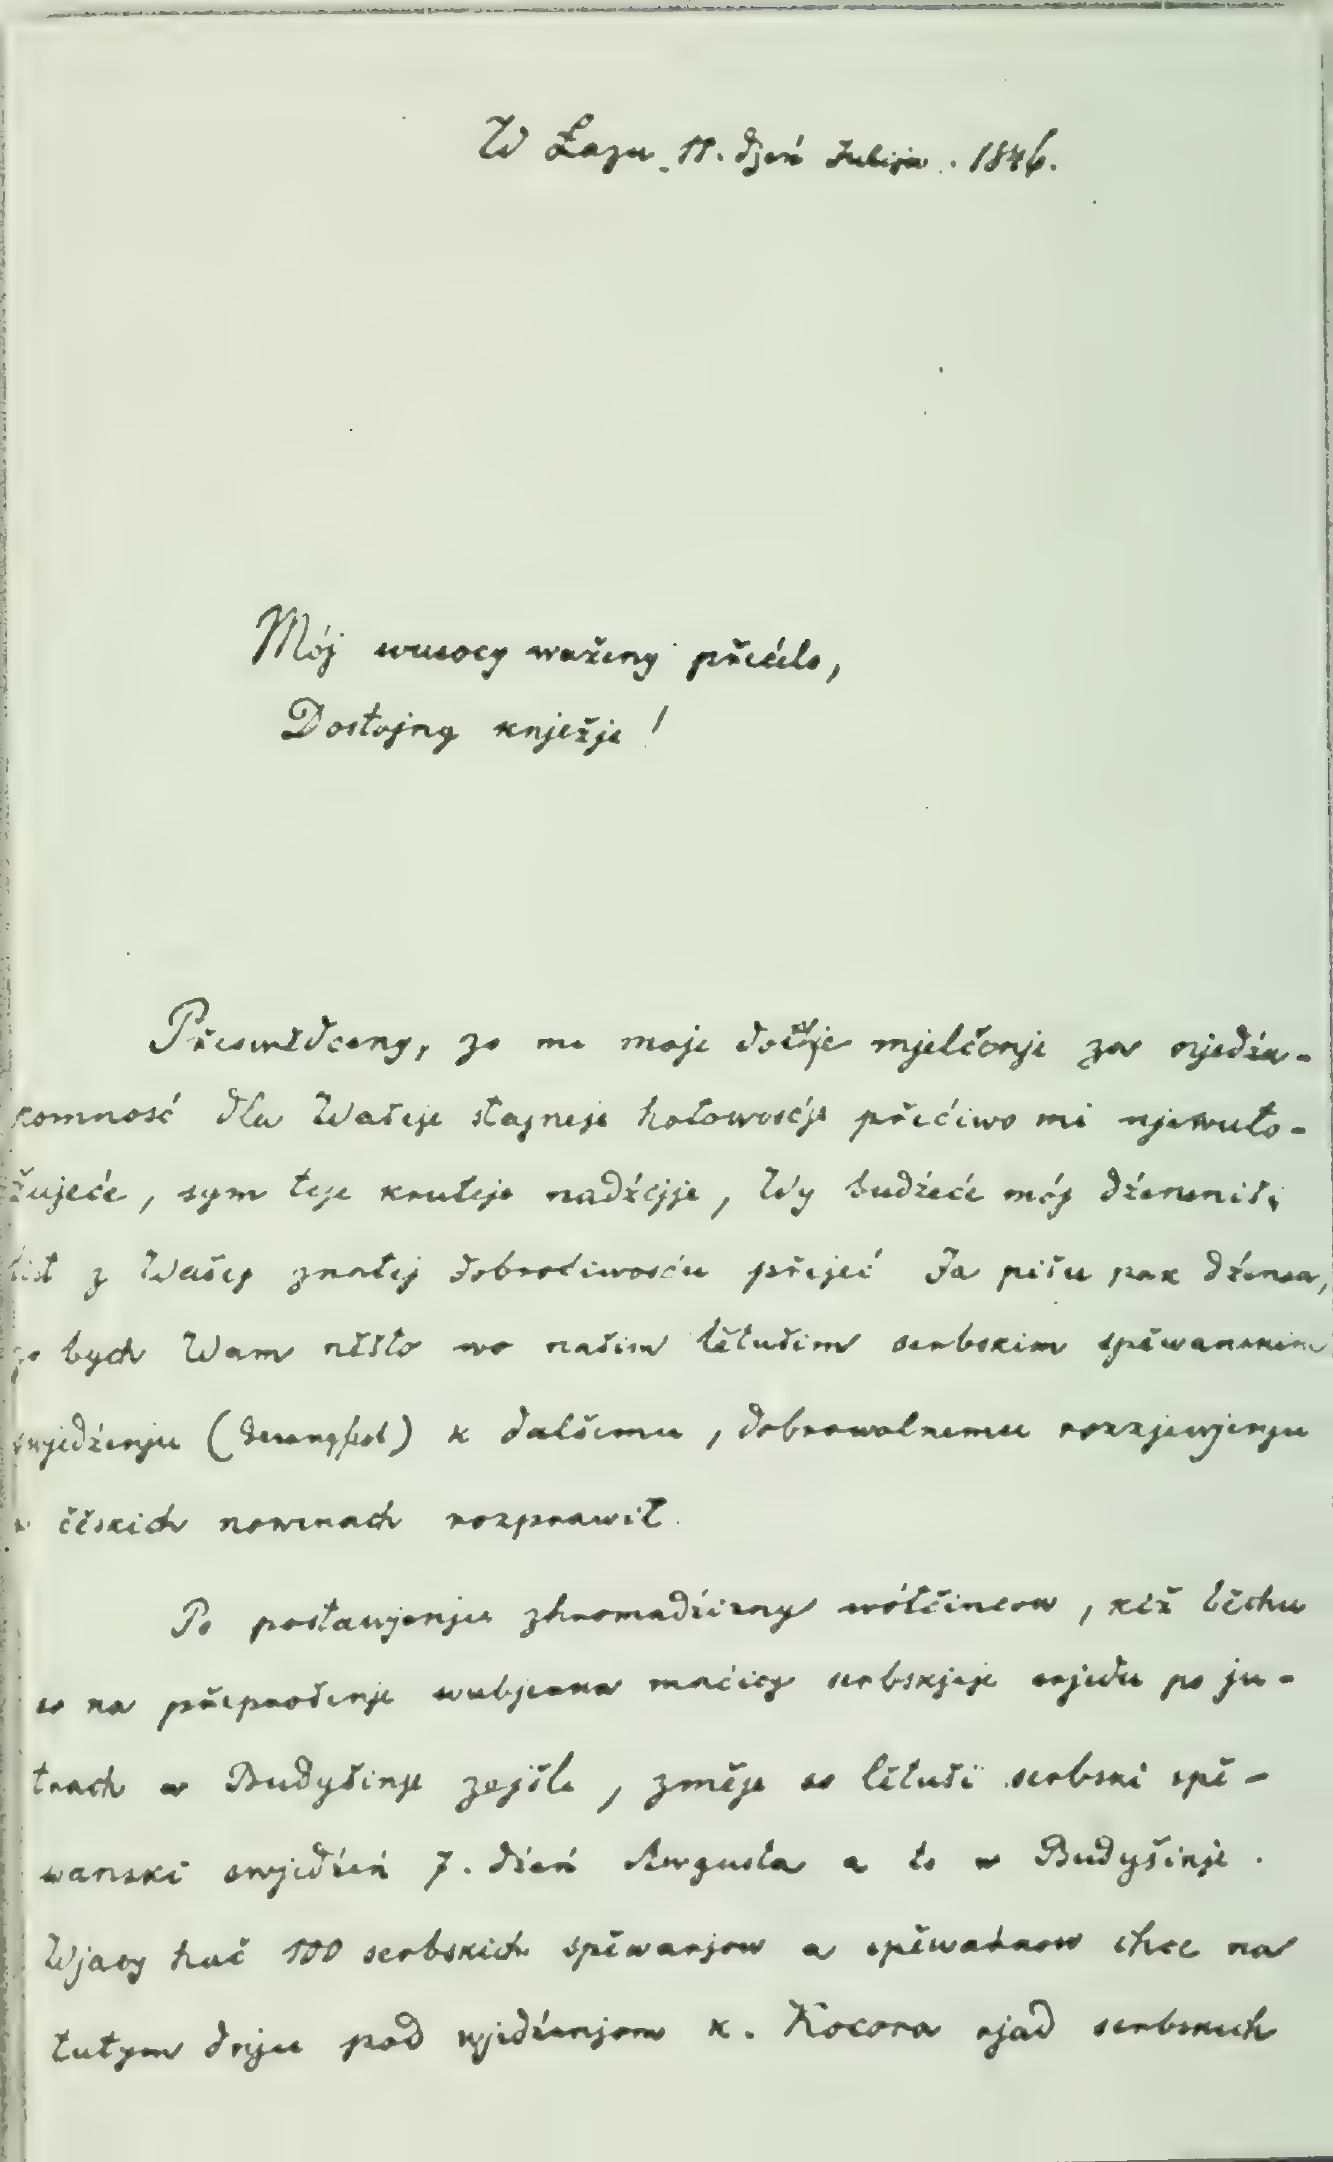 W Łazu 11. dźeń Julija. 1846.
Mój wusocy waženy přećelo,
Dostojny knježje!
Přeswědceny, zo mi moje dołhje mjelčenje za njedźa-
komnosć dla Wašeje stajneje hotowosćje přećiwo mi njewuło-
žujeće, sym teje kruteje nadźejje, Wy budźeće mój dźensniši
list z Wašej znatej dobroćiwosću přijeć Ja pišu pak dźensa,
zo bych Wam něšto wo našim lětušim serbskim spěwanskim
swjedźenju (Gesangfest) k dalšemu, dobrowolnemu rozzjewjenju
w čěskich nowinach rozprawił.
Po postawjenju zhromadźizny wótčincow, kiž běchu
so na přeprošenje wubjerka maćicy serbskjeje srjedu po ju-
trach w Budyšinje zejšli, změje so lětuši serbski spě-
wanski swjedźeń 7. dźeń Awgusta a to w Budyšinje.
Wjacy hač 100 serbskich spěwarjow a spěwarkow chce na
tutym dnju pod wjedźenjom k. Kocora rjad serbskich